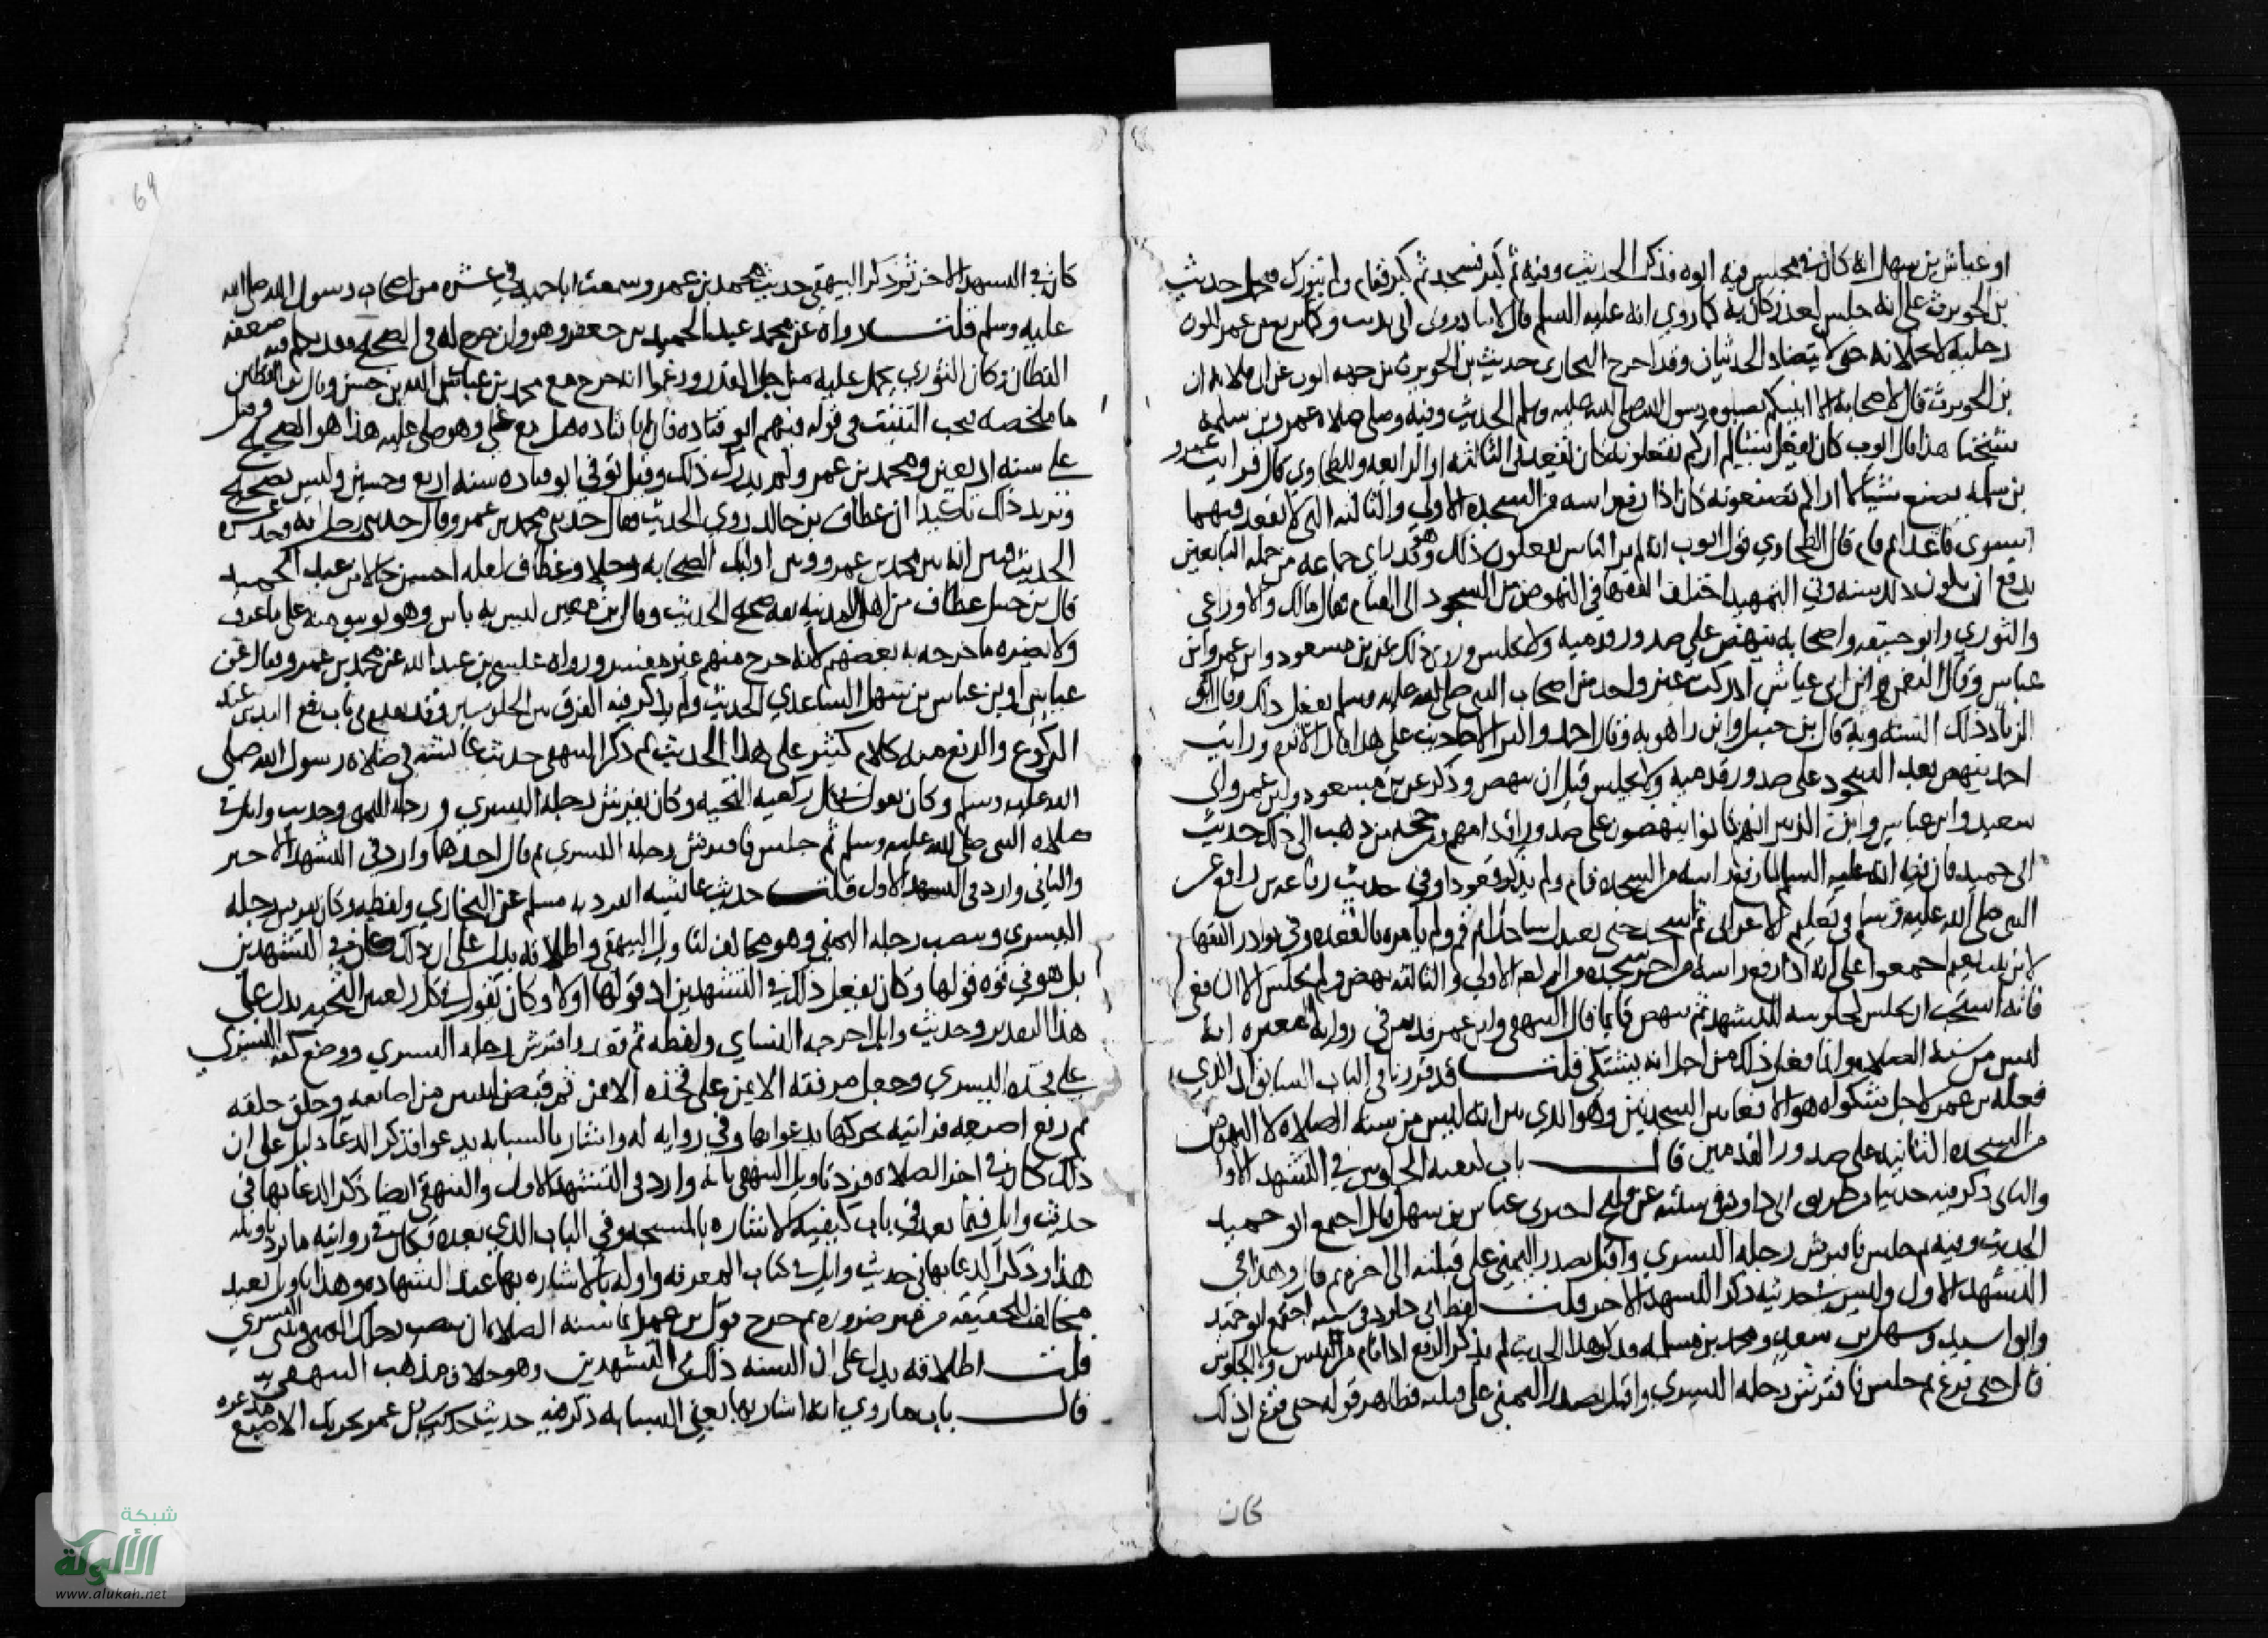 او عباس بن سهل انه كان في مجلس فيه ابوه فذكر الحديث وفيه ثم كبر فسجد ثم كبر فقام ولم يتورك فحمل حديث
بن الحويرث على انه جلس لعذر كان به كما روي انه عليه السلام قال لا تبادروني اني بدنت وكما تربع بن عمر لكون
رجليه لا تحملانه حتى لا يتضاد الحديثان وقد اخرج البخاري حديث بن الحويرث من جهه ايوب عن ابي قلابه ان
بن الحويرث قال لاصحابه الا انبيكم بصلوه رسول الله صلى الله عليه وسلم الحديث وفيه وصلى صلاه عمرو بن سلمه
شيخنا هذا قال ايوب كان يفعل شيئا لم ارهم يفعلونه كان يقعد في الثالثه او الرابعه وللطحاوي قال فرايت عمرو
بن سلمه يصنع شيئا لا اراكم تصنعونه كان اذا رفع راسه من السجده الاولى والثالثه التي لا يقعد فيهما
استوى قاعدا ثم قام قال الطحاوي قول ايوب انه لم ير الناس يفعلون ذلك وهو قد راى جماعه من جله التابعين
يدفع ان يكون ذلك سنه وفي التمهيد اختلف الفقها في النهوض من السجود الى القيام فقال مالك والاوزاعي
والثوري وابو حنيفه واصحابه ينهض على صدور قدميه ولا يجلس وروي ذلك عن بن مسعود وابن عمر وابن
عباس وقال النعمن بن ابي عياش ادركت غير واحد من اصحاب النبي صلى الله عليه وسلم يفعل ذلك وقال ابو
الزناد ذلك السنه وبه قال بن حنبل وابن راهويه وقال احمد واكثر الاحاديث على هذا قال الاثرم ورايت
احمد ينهض بعد السجود على صدور قدميه ولا يجلس قبل ان ينهض وذكر عن بن مسعود وابن عمر وابي
سعيد وابن عباس وابن الزبير انهم كانوا ينهضون على صدور اقدامهم وحجه من ذهب الى ذلك حديث
ابي حميد فان فيه انه عليه السلام لما رفع راسه من السجده قام ولم يذكر قعودا وفي حديث رفاعه بن رافع عن
النبي صلى الله عليه وسلم في تعليم الاعرابي ثم اسجد حتى تعتدل ساجدا ثم قم ولم يامره بالقعده وفي نوادر الفقها
لابن بنت نعيم اجمعوا على انه اذا رفع راسه من اخر سجده من الركعه الاولى والثالثه نهض ولم يجلس الا الشافعي
فانه استحب ان يجلس كجلوسه للتشهد ثم ينهض قايما قال البيهقي وابن عمر قد بين في روايه المغيره انه
ليس من سنه الصلاه وانما فعل ذلك من اجل انه يشتكي قلت قد قررنا في الباب السابق ان الذي
فعله بن عمر لاجل شكواه هو الاقعا بين السجدتين وهو الذي بين انه ليس من سنه الصلاه لا النهوض
من السجده الثانيه على صدور القدمين قال باب كيفيه الجلوس في التشهد الاول
والثاني ذكر فيه حديثا من طريق ابي داود في سننه عن فليح اخبرني عباس بن سهل قال اجتمع ابو حميد
الحديث وفيه ثم جلس فافترش رجله اليسرى واقبل بصدر اليمنى على قبلته الى اخره ثم قال وهذا في
التشهد الاول وليس في حديثه ذكر التشهد الاخر قلت لفظ ابي داود في سننه اجتمع ابو حميد
وابو اسيد وسهل بن سعد ومحمد بن مسلمه فذكر هذا الحديث لم يذكر الرفع اذا قام من ثنتين ولا الجلوس
قال حتى فرغ ثم جلس فافترش رجله اليسرى واقبل بصدر اليمنى على قبلته فظاهر قوله حتى فرغ ان ذلك
كان
69
كان في التشهد الاخر ثم ذكر البيهقي حديث محمد بن عمرو سمعت ابا حميد في عشره من اصحاب رسول الله صلى الله
عليه وسلم قلت رواه عن محمد عبد الحميد بن جعفر وهو وان خرج له في الصحيح فقد تكلم فيه ضعفه
القطان وكان الثوري يحمل عليه من اجل القدر وزعموا انه خرج مع محمد بن عبد الله بن حسن وقال بن القطان
ما ملخصه يجب التثبت في قوله فيهم ابو قتاده فان ابا قتاده قتل مع علي وهو صلى عليه هذا هو الصحيح وقتل
علي سنه اربعين ومحمد بن عمرو لم يدرك ذلك وقيل توفي ابو قتاده سنه اربع وخمسين وليس بصحيح
ويزيد ذلك تاكيدا ان عطاف بن خالد روي الحديث فقال حدثني محمد بن عمرو وقال حدثني رجل انه وجد عشره
الحديث فبين انه بين محمد بن عمرو وبين اوليك الصحابه رجلا وعطاف لعله احسن حالا من عبد الحميد
قال بن حنبل عطاف من اهل المدينه ثقه صحيح الحديث وقال بن معين ليس به باس وهو توثيق منه على ما عرف
ولا يضره ما خرجه به بعضهم لانه جرح منهم غير مفسر ورواه عيسى بن عبد الله عن محمد بن عمرو فقال عن
عباس او بن عباس بن سهل الساعدي الحديث ولم يذكر فيه الفرق بين الجلوسين وقد تقدم في باب رفع اليدين عند
الركوع والرفع منه كلام كثير على هذا الحديث ثم ذكر البيهقي حديث عايشه في صلاه رسول الله صلى
الله عليه وسلم وكان يقول في كل ركعتين التحيه وكان يفترش رجله اليسرى ورجله اليمنى وحديث وايل في
صلاه النبي صلى الله عليه وسلم ثم جلس فافترش رجله اليسرى ثم قال احدهما وارد في التشهد الاخير
والثاني وارد في التشهد الاول قلت حديث عايشه انفرد به مسلم عن البخاري ولفظه وكان يفرش رجله
اليسرى وينصب رجله اليمنى وهو مخالف لتاويل البيهقي واطلاقه يدل على ان ذلك كان في التشهدين
بل هو في قوه قولها وكان يفعل ذلك في التشهدين اذ قولها اولا وكان يقول في كل ركعتين التحيه يدل على
هذا التقدير وحديث وايل اخرجه النساي ولفظه ثم قعد وافترش رجله اليسرى ووضع كفه اليسرى
على فخذه اليسرى وجعل مرفقه الايمن على فخذه الايمن ثم قبض اثنتين من اصابعه وحلق حلقه
ثم رفع اصبعه فرايته يحركها يدعو بها وفي روايه له واشار بالسبابه يدعو فذكر الدعا دليل على ان
ذلك كان في اخر الصلاه فرد تاويل البيهقي بانه وارد في التشهد الاول والبيهقي ايضا ذكر الدعا بها في
حديث وايل فيما بعد في باب كيفيه الاشاره بالمسبحه وفي الباب الذي بعده فكان في روايته ما يرد تاويله
هذا وذكر الدعا بها في حديث وايل في كتاب المعرفه واوله بالاشاره بها عند الشهاده وهذا تاويل بعيد
مخالف للحقيقه من غير ضروره ثم خرج قول بن عمر انما سنه الصلاه ان تنصب رجلك اليمنى وتثني اليسرى
قلت اطلاقه يدل على ان السنه ذلك في التشهدين وهو خلاف مذهب البيهقي
قال باب ما روي انه اشار بها يعني السبابه ذكر فيه حديث بن عمر تحريك الاصبع
شبكة
الألوكة
www.alukah.net